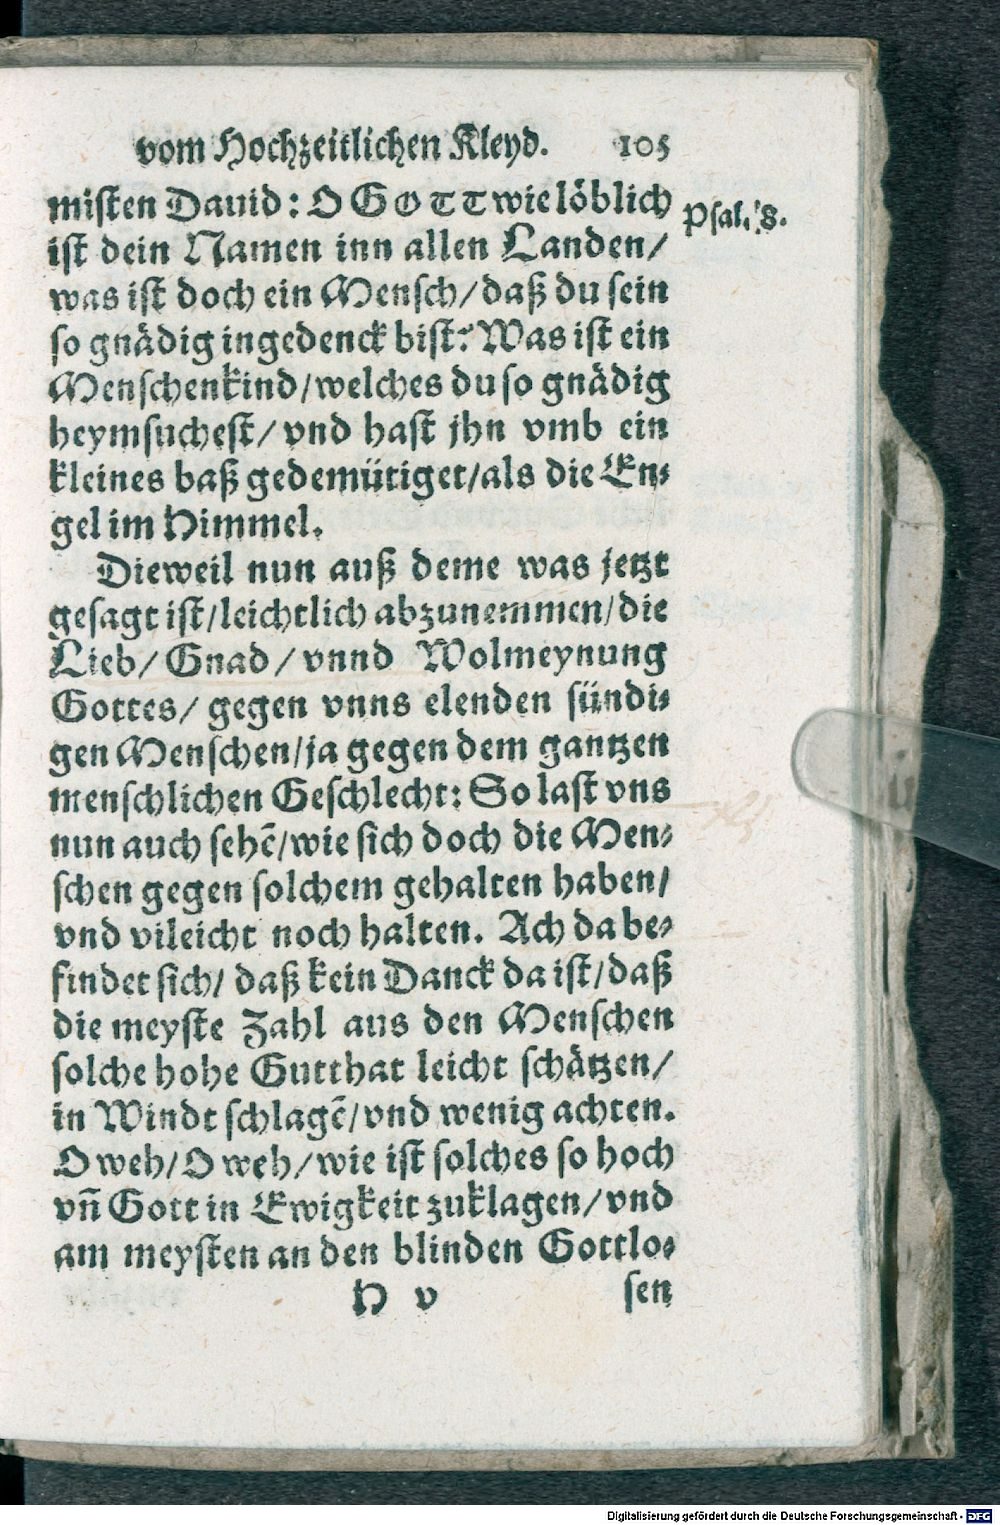 vom Hochzeitlichen Kleyd. 105
misten Dauid: O GOTT wie löblich
Psal. 8.
ist dein Namen inn allen Landen/
was ist doch ein Mensch/daß du sein
so gnädig ingedenck bist: Was ist ein
Menschenkind/welches du so gnädig
heymsuchest/vnd hast jhn vmb ein
kleines baß gedemütiget/als die En⸗
gel im Himmel.
Dieweil nun auß deme was jetzt
gesagt ist/leichtlich abzunemmen/die
Lieb/Gnad/vnnd Wolmeynung
Gottes/gegen vnns elenden sündi⸗
gen Menschen/ja gegen dem gantzen
menschlichen Geschlecht: So last vns
nun auch sehẽ/wie sich doch die Men⸗
schen gegen solchem gehalten haben/
vnd vileicht noch halten. Ach da be⸗
findet sich/daß kein Danck da ist/daß
die meyste Zahl aus den Menschen
solche hohe Gutthat leicht schätzen/
in Windt schlagẽ/vnd wenig achten.
O weh/O weh/wie ist solches so hoch
vñ Gott in Ewigkeit zuklagen/vnd
am meysten an den blinden Gottlo⸗
H v sen
Digitalisierung gefördert durch die Deutsche Forschungsgemeinschaft - DFG